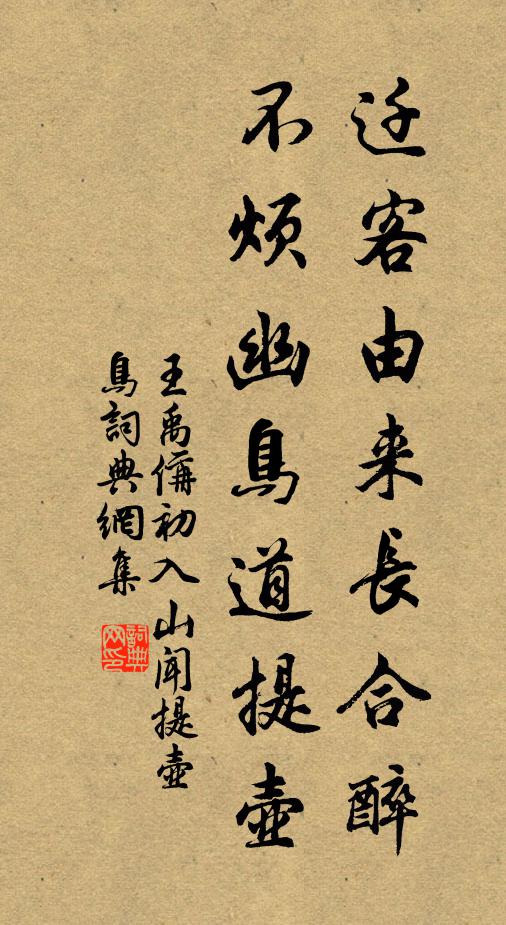 迁客由来長合醉
不烦幽鳥道提壺
王禹偁初入山闻提壺
鳥詞典網集
詞典网印